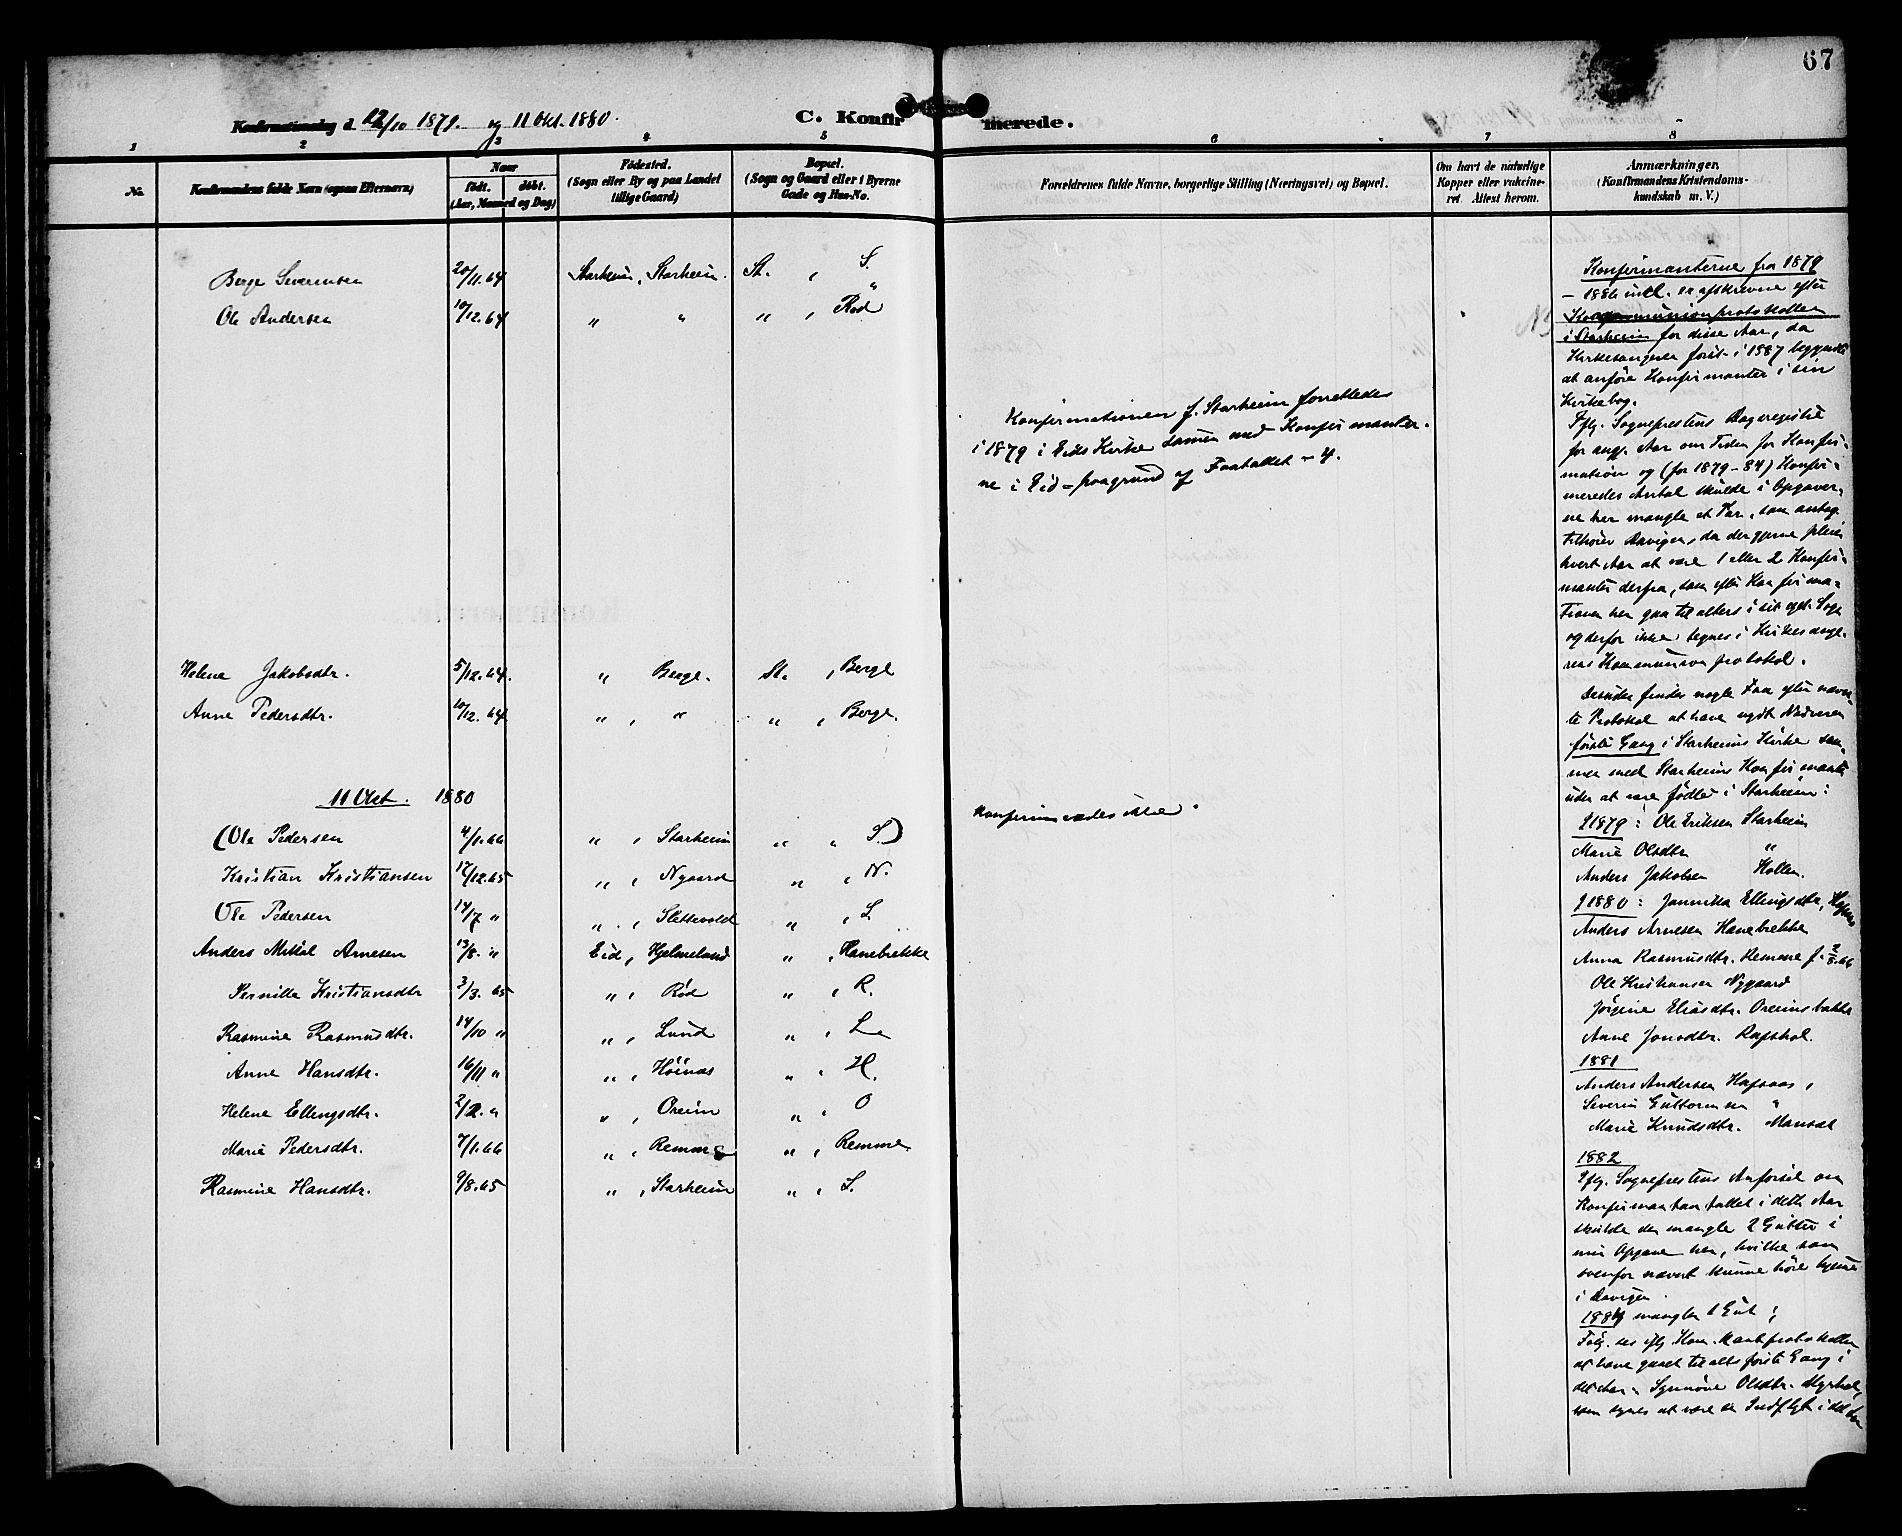 67
Konfirmationsdag d. 12/10 1879. og 11 Okt. 1880.
C. Konfirmerede.
1 2 3 4 5 6 7 8
No.
Konfirmandens fulde Navn (ogsaa Efternavn)
Naar
født. døbt.
(Aar, Maaned og Dag)
Fødested.
(Sogn eller By og paa Landet
tillige Gaard)
Bopæl.
(Sogn og Gaard eller i Byerne
Gade og Hus-No.
Forældrenes fulde Navne, borgerlige Stilling (Næringsvei) og Bopæl.
Om havt de naturlige
Kopper eller vakcine-
ret. Attest herom.
Anmærkninger.
(Konfirmandens Kristendoms-
kundskab m. V.)
Berge Severinsen 20/11.64 Starheim, Starheim. St. , S.
Ole Andersen 10/12.64 " " " , Rød
Konfirmationen f. Starheim forrettedes
i 1879 i Eids Kirke samen med Konfirmanter-
ne i Eid - paagrund af Faatallet - 4.
Helene Jakobsdtr. 5/12.64. " Berge. St. , Berge
Anne Pedersdtr. 10/12.64 " , " " , Berge.
11 Okt. 1880
(Ole Pedersen 4/1.66 " , Starheim " , S.) Konfirmeredes ikke.
Kristian Kristiansen 17/12.65 " , Nygaard " , N.
Ole Pedersen 14/7 " " , Slettevold " , S.
Anders Mikal Arnesen 13/8. " Eid, Hjelmeland " , Hanebrekke
Pernille Kristiansdtr 3/3. 65 " , Rød " , R.
Rasmine Rasmusdtr. 14/10 " " , Lund " , L.
Anne Hansdtr. 16/11 " " , Höinæs " , H.
Helene Ellingsdtr. 2/2. " " , Oreim " , O
Marie Pedersdtr. 7/1.66 " , Remme " , Remme.
Rasmine Hansdtr. 9/8.65 " , Starheim " , S.
Konfirmanterne fra 1879
- 1886 incl. er afskrevne efter
Kommunionprotokollen
i Starheim for disse Aar, da
Kirkesangeren först i 1887 begyndte
at anföre Konfirmanter i sin
Kirkebog.
Iflg. Sogneprestens Dagregister
for ang. Aar om Tiden for Konfir-
mation og (for 1879-84) Konfir-
meredes Antal skulde i Opgaver-
ne her mangle et Par, som antag.
tilhörer Daviken, da der gjerne pleier
hvert Aar at være 1 eller 2 Konfir-
manter derfra, som efter Konfirma-
tionen her gaa til alters i sit eget Sogn
og derfor ikke tegnes i Kirkesange-
rens Kommunionprotokol.
Desuden findes nogle Faa efter nævn-
te Protokol at have nydt Nadveren
förste Gang i Starheims Kirke sam-
men med Starheims Konfirmanter
uden at være födte i Starheim:
I 1879: Ole Eriksen Starheim
Marie Olsdtr "
Anders Jakobsen Hollen.
I 1880: Jannikka Ellingsdtr,
Anders Arnesen Hanebrekke
Anna Rasmusdtr. Remme f. 2/8.66
Ole Kristiansen Nygaard
Jørgine Eliasdtr. Oreimsbakke
Anne Jonsdtr. Rafshol.
1881
Anders Andersen Hafsaas,
Severin Guttormsen "
Marie Knudsdtr. Mansæt
1882
Iflg. Sogneprestens Anförsel om
Konfirmantantallet i dette Aar
skulde der mangle 2 Gutter i
min Opgave her, hvilke som
ovenfor nævnt kunne höre hjemme
i Daviken.
1884 mangler 1 Gut;
Kommunikantprotokollen
at have gaaet til alters förste Gang i
det Aar. Synnöve Olsdtr. Myrhol,
som synes at være en Indflyt i det Aar